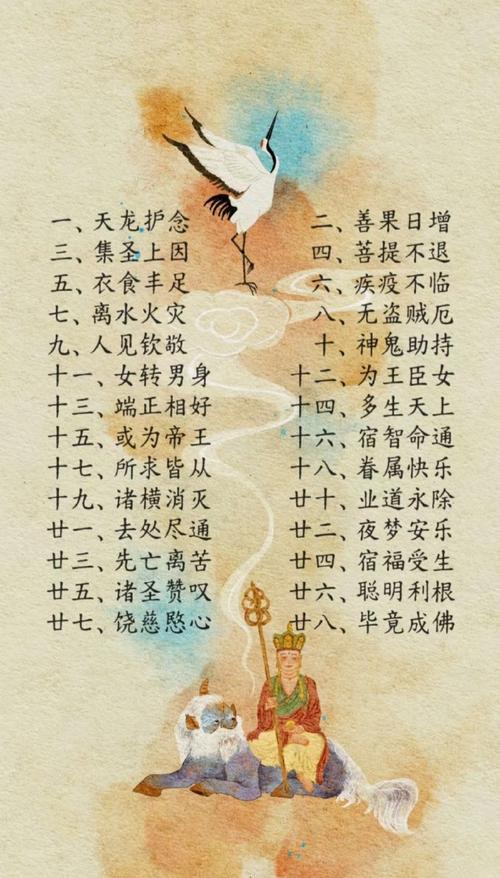 一、天龙护念 二、善果日增
三、集圣上因 四、菩提不退
五、衣食丰足 六、疾疫不临
七、离水火灾 八、无盗贼厄
九、人见钦敬 十、神鬼助持
十一、女转男身 十二、为王臣女
十三、端正相好 十四、多生天上
十五、或为帝王 十六、宿智命通
十七、所求皆从 十八、眷属快乐
十九、诸横消灭 廿十、业道永除
廿一、去处尽通 廿二、夜梦安乐
廿三、先亡离苦 廿四、宿福受生
廿五、诸圣赞叹 廿六、聪明利根
廿七、饶慈愍心 廿八、毕竟成佛